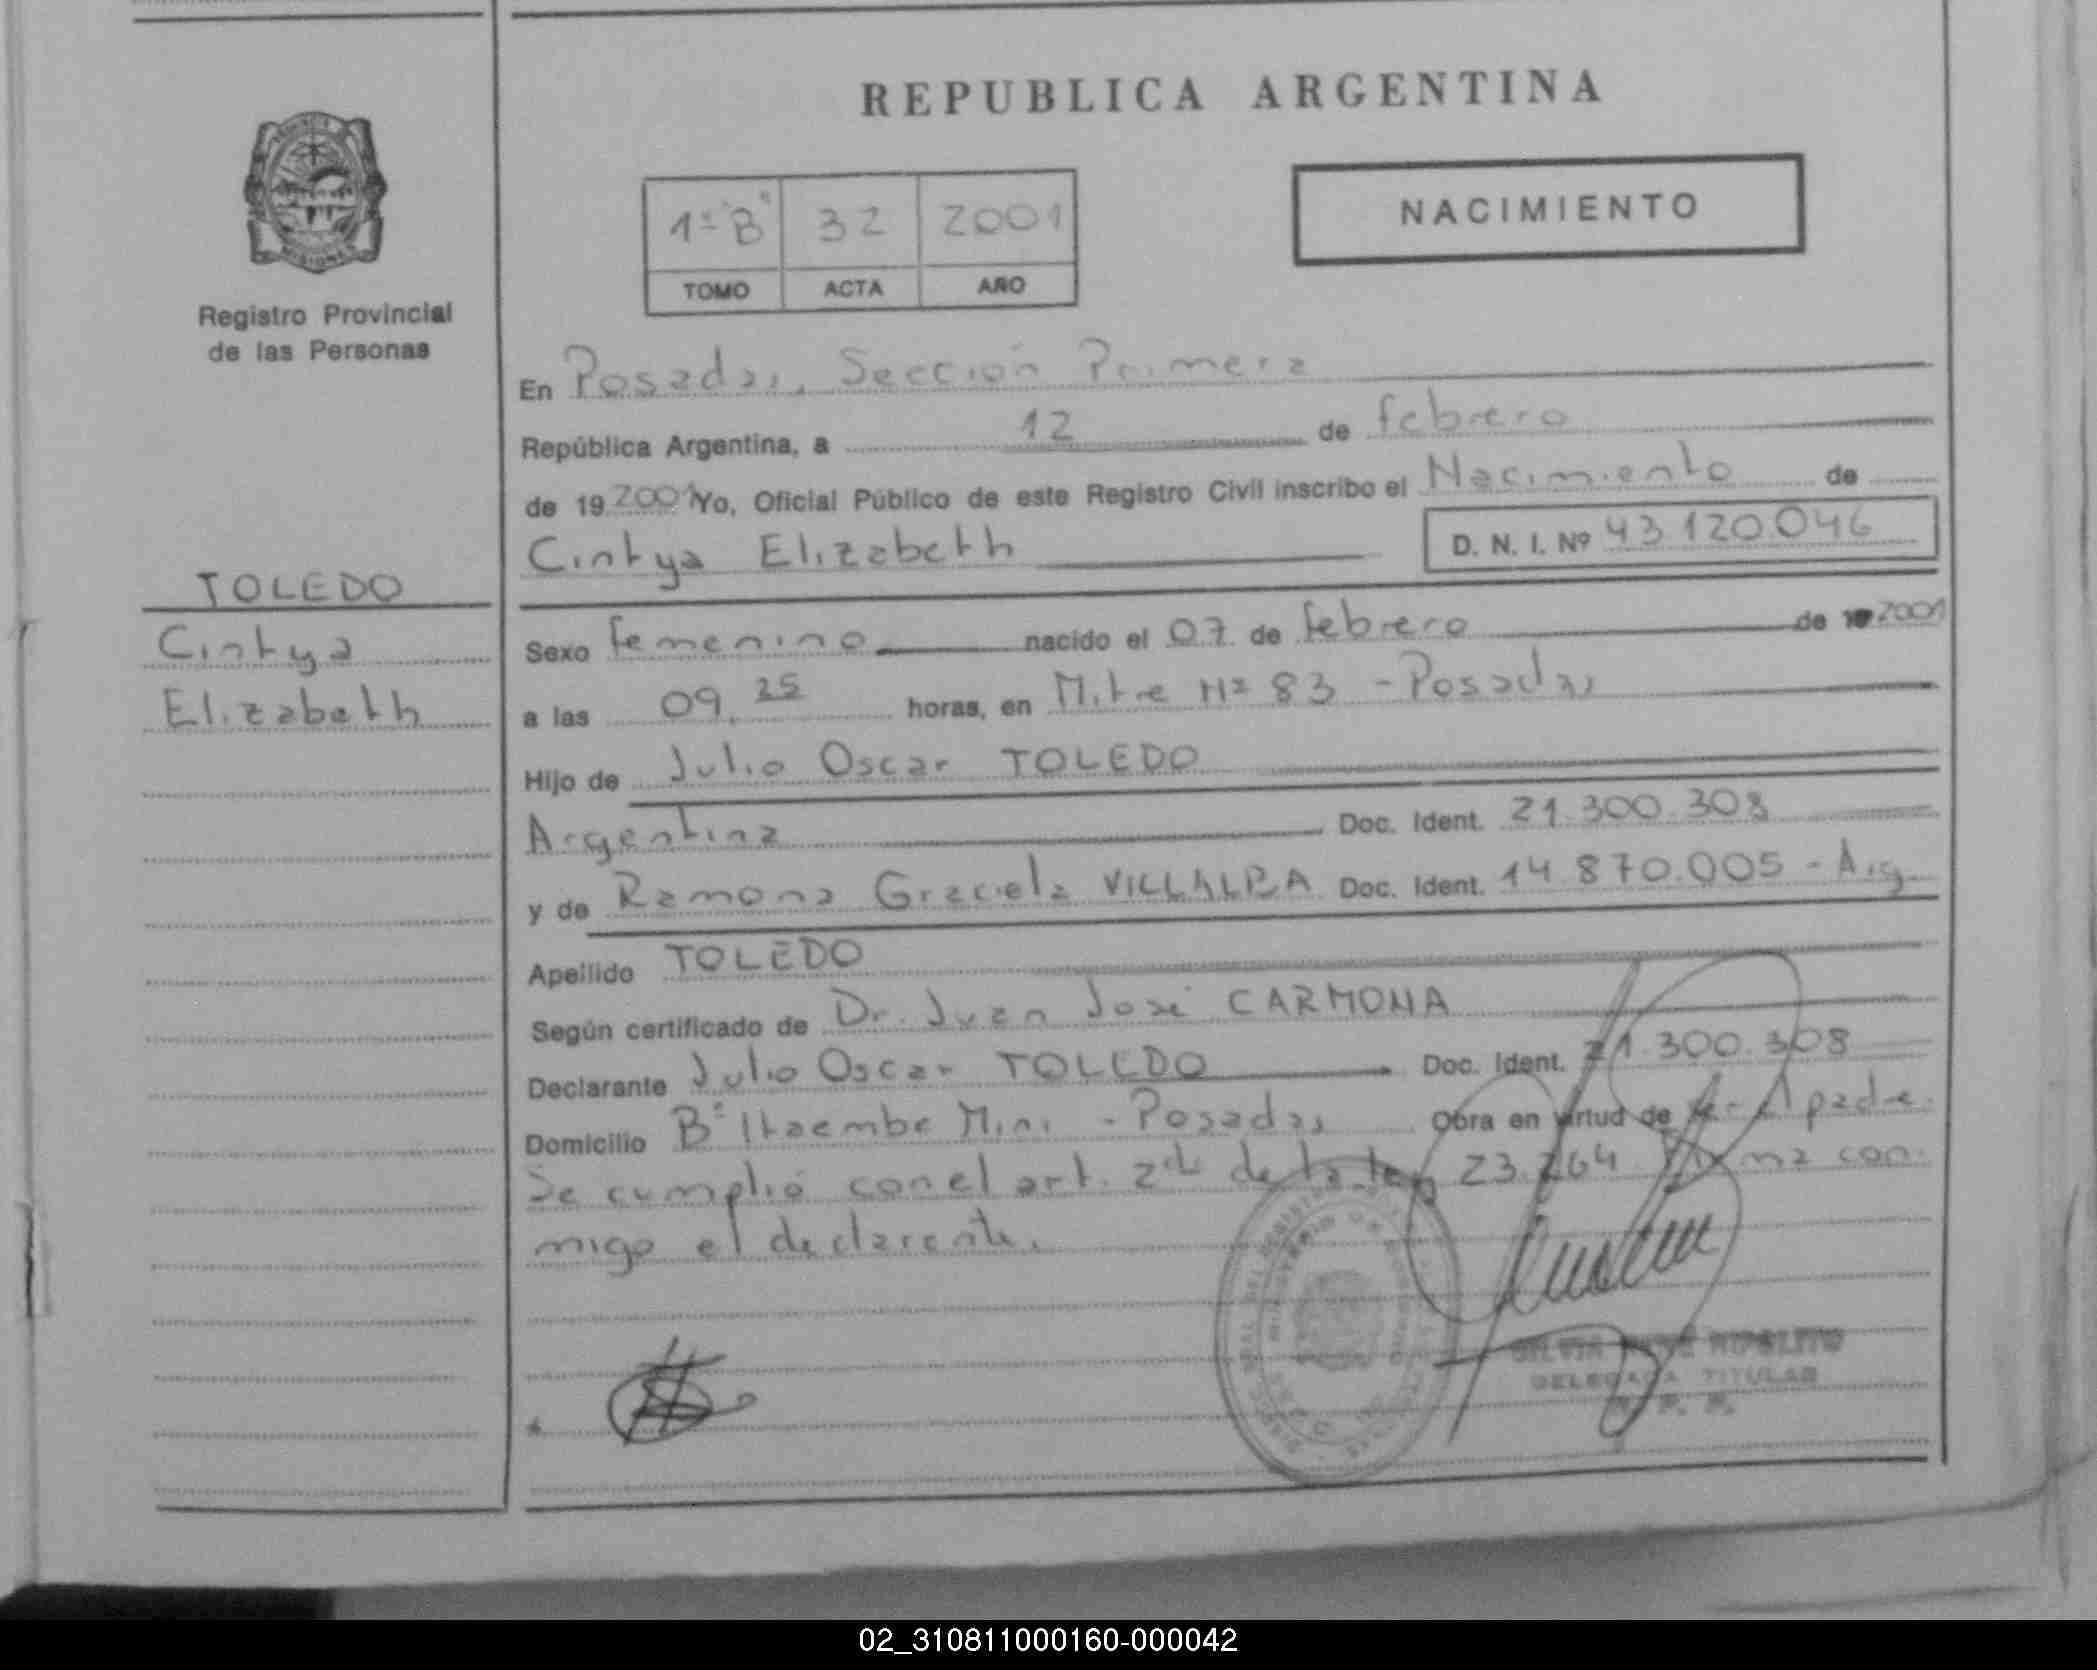 REPUBLICA ARGENTINA
NACIMIENTO
1º "B" 32 2001
TOMO ACTA AÑO
Registro Provincial
de las Personas
En Posadas, Sección Primera
República Argentina, a 12 de febrero
de 19 2001 Yo, Oficial Público de este Registro Civil inscribo el Nacimiento de
Cintya Elizabeth D. N. I. Nº 43.120.046
TOLEDO
Cintya
Elizabeth
Sexo femenino nacido el 07 de febrero de 19 2001
a las 09,25 horas, en Mitre Nº 83 - Posadas
Hijo de Julio Oscar TOLEDO
Argentina Doc. Ident. 21.300.308
y de Ramona Graciela VILLALBA Doc. Ident. 14.870.005 - Arg.
Apellido TOLEDO
Según certificado de Dr. Juan José CARMONA
Declarante Julio Oscar TOLEDO Doc. Ident. 21.300.308
Domicilio Bº Itaembe Mini - Posadas Obra en virtud de ser el padre.
Se cumplió con el art. 2do de la ley 23.264 Firma con-
migo el declarante.
SILVIA HIPOLITO
DELEGADA TITULAR
R. P. P.
02_310811000160-000042